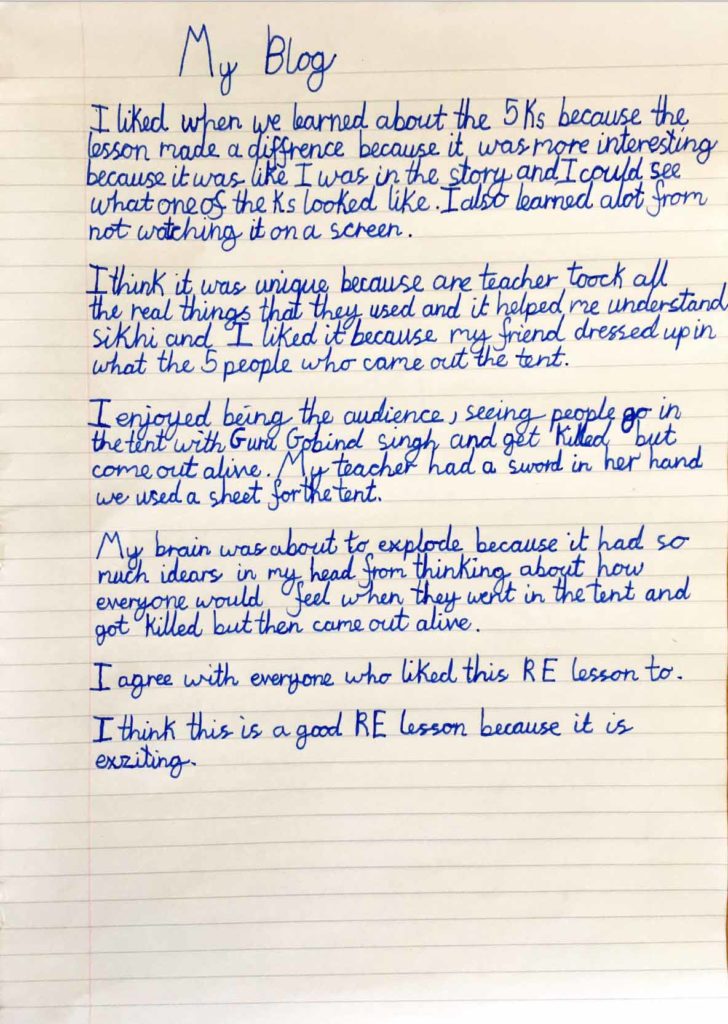 My Blog
I liked when we learned about the 5Ks because the
lesson made a diffrence because it was more interesting
because it was like I was in the story and I could see
what one of the Ks looked like. I also learned alot from
not watching it on a screen.
I think it was unique because are teacher toock all
the real things that they used and it helped me understand
sikhi and I liked it because my friend dressed up in
what the 5 people who came out the tent.
I enjoyed being the audience, seeing people go in
the tent with Guru Gobind singh and get killed but
come out alive. My teacher had a sword in her hand
we used a sheet for the tent.
My brain was about to explode because it had so
much idears in my head from thinking about how
everyone would feel when they went in the tent and
got killed but then came out alive.
I agree with everyone who liked this RE lesson to.
I think this is a good RE lesson because it is
exziting.